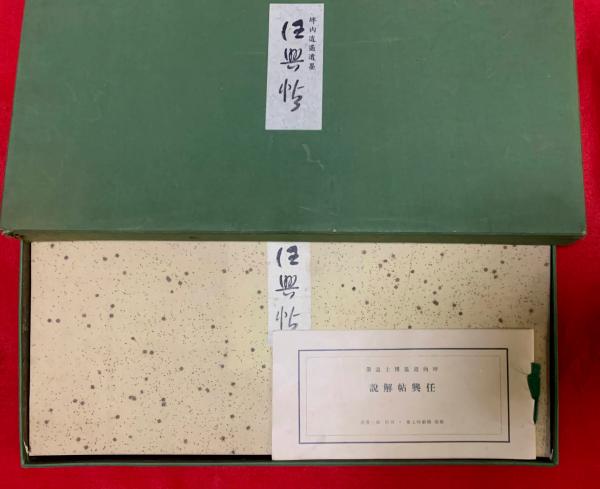 坪内逍遙遺墨
任興帖
任興帖
坪内逍遙博士追慕
任興帖解説